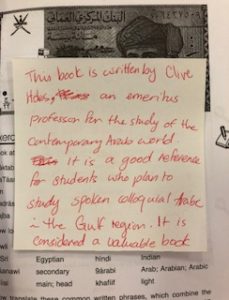 البنك المركزي العماني
This book is written by Clive
Holes, an emeritus
professor for the study of the
contemporary Arab world.
It is a good reference
for students who plan to
study spoken colloquial Arabic
in the Gulf region. It is
considered a valuable book
Egyptian hindi Indian
secondary 9árabi Arab; Arabian; Arabic
main; head khafíif light
translate these common written phrases, which combine the